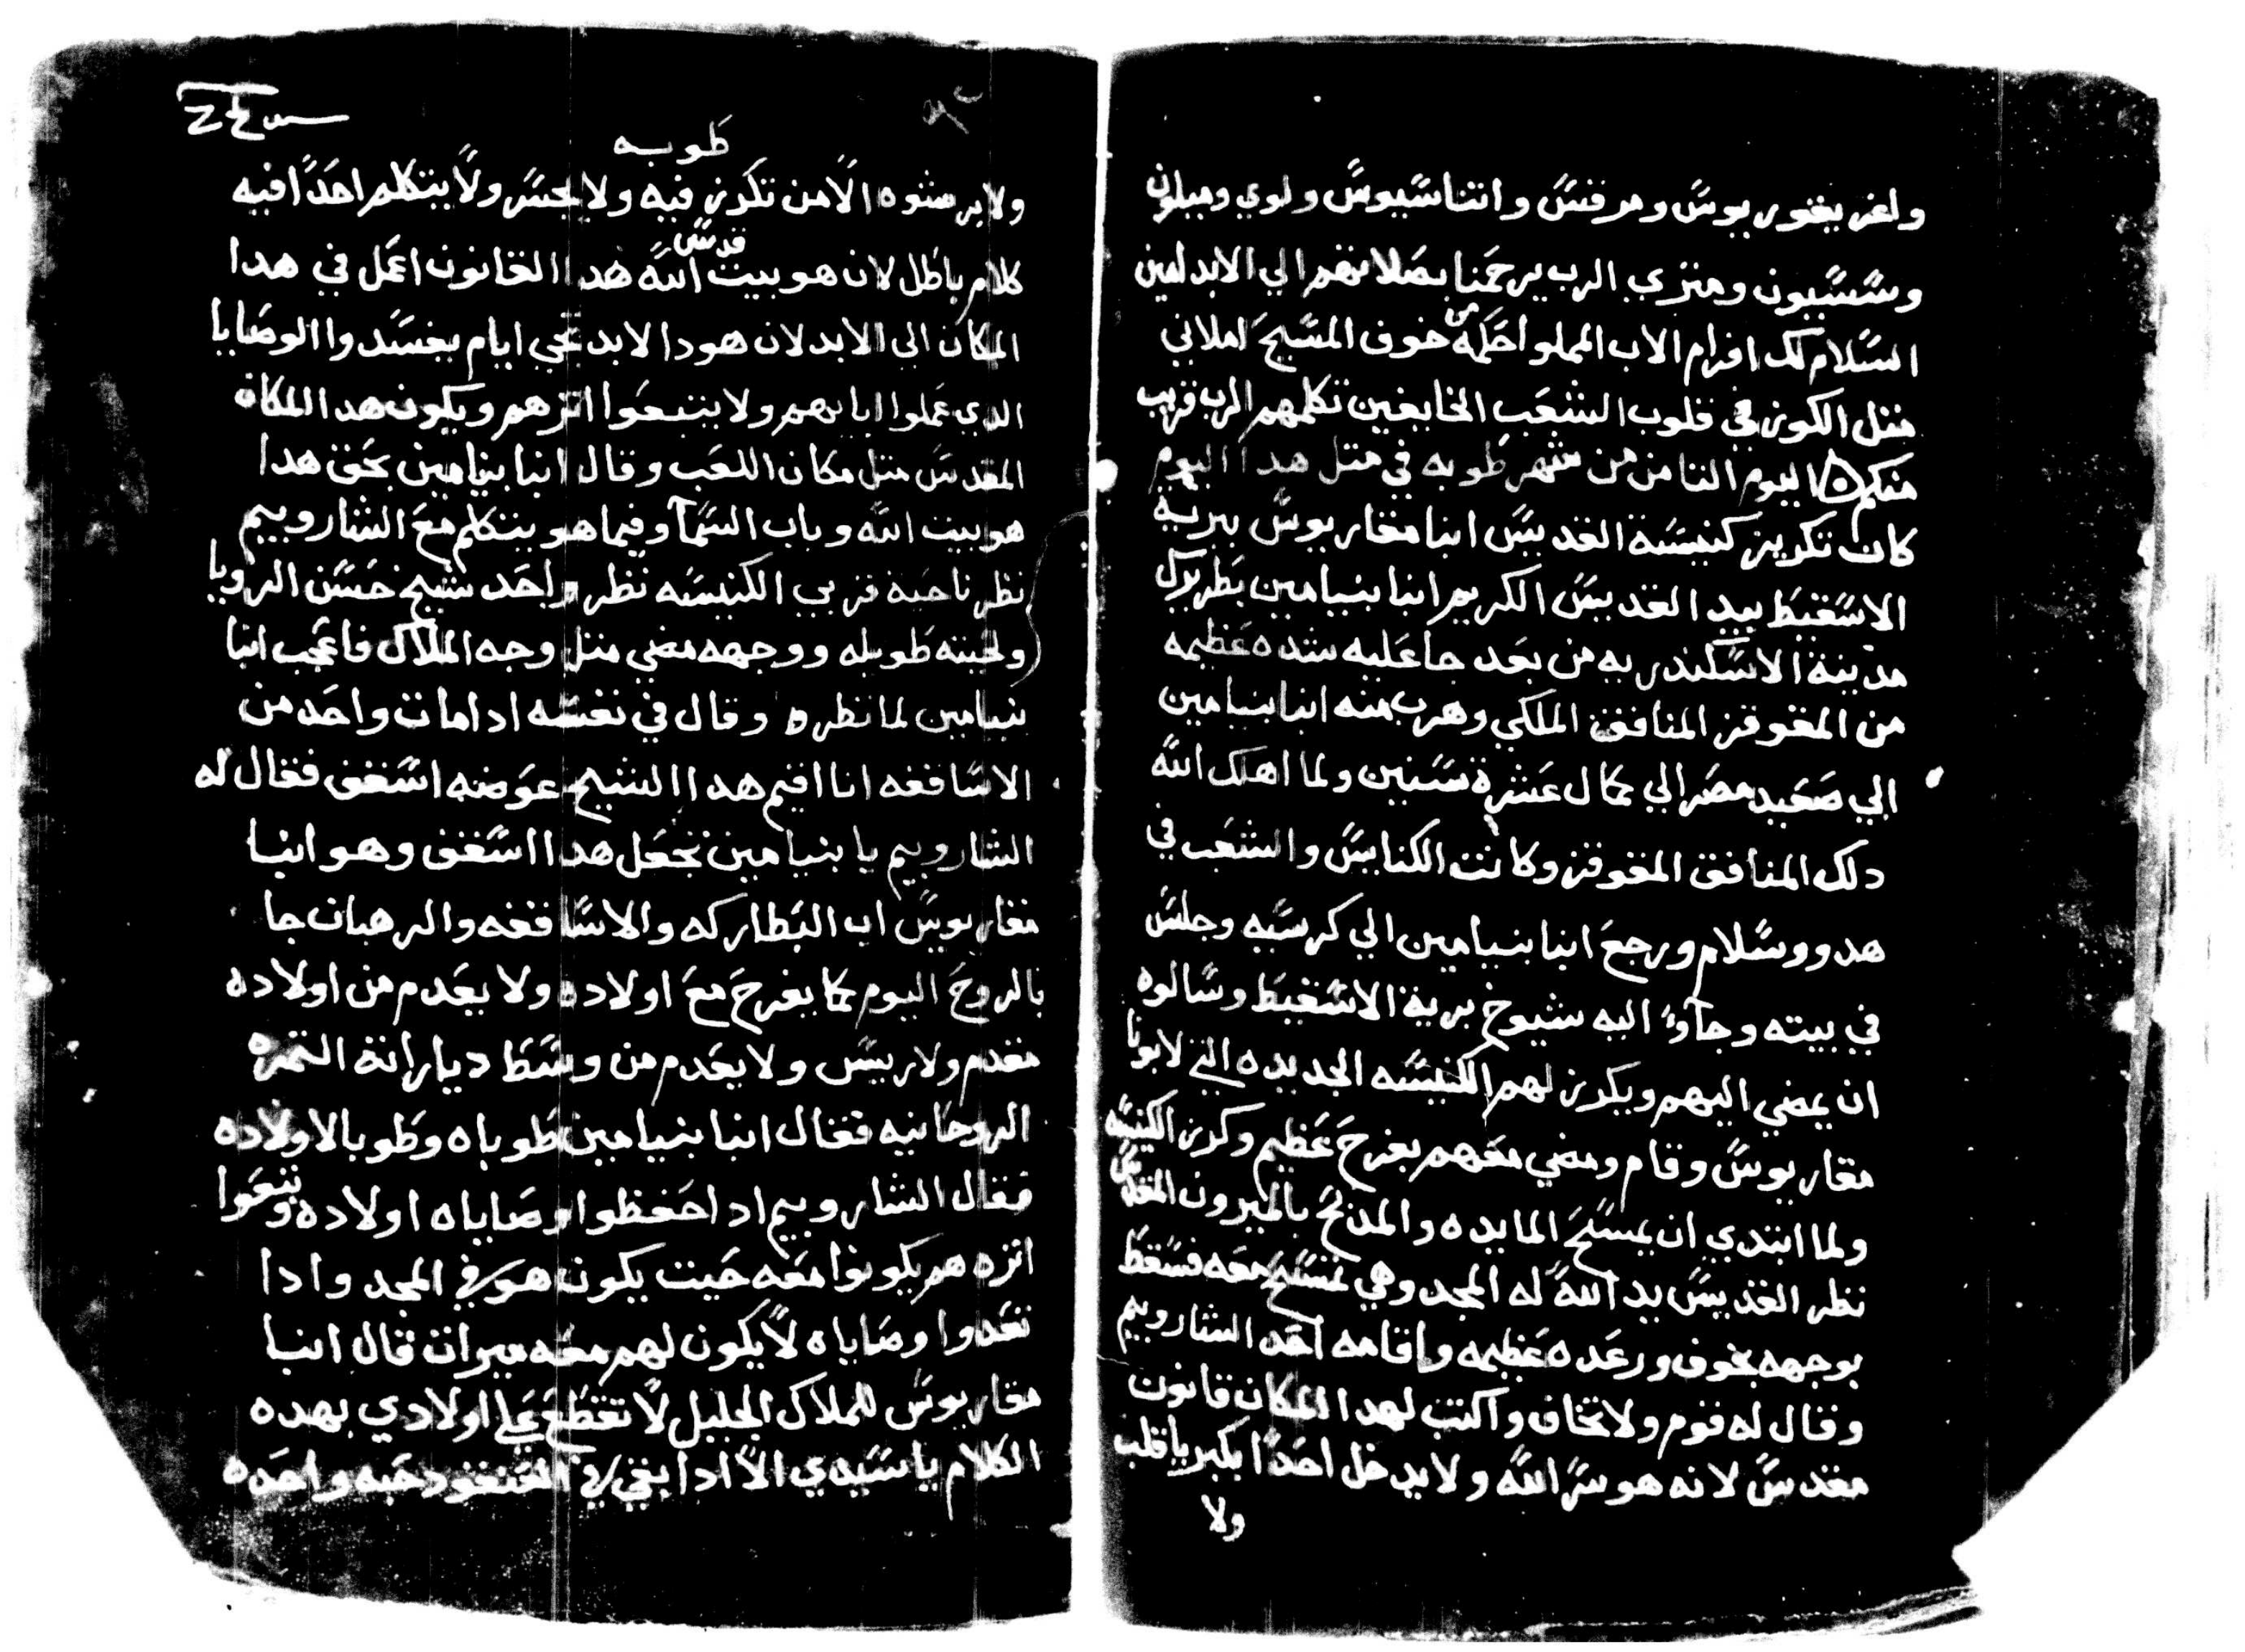 ولغريغوريوس ومرقس واتناسيوس ولوي وميلون
وسسيون ومنزي الرب يرحمنا بصلاتهم الي الابد امين
السلام لك افرام الاب المملوا حكمه من خوف المسيح املاني
متل الكوز في قلوب الشعب الخايفين تكلمهم الرب قريب
منكم اليوم التامن من شهر طوبه في متل هدا اليوم
كان تكريز كنيسة القديس انبا مقاريوس ببرية
الاسقيط بيد القديس الكريم انبا بنيامين بطريرك
مدينة الاسكندريه من بعد جا عليه شده عظيمه
من المقوقز المنافق الملكي وهرب منه انبا بنيامين
الي صعيد مصر الي كمال عشرة سنين ولما اهلك الله
دلك المنافق المقوقز وكانت الكنايس والشعب في
هدو وسلام ورجع انبا بنيامين الي كرسيه وجلس
في بيته وجاوء اليه شيوخ برية الاسقيط وسالوه
ان يمضي اليهم ويكرز لهم الكنيسه الجديده التي لابونا
مقاريوس وقام ومضي معهم بفرح عظيم وكرز الكنيسه
ولما ابتدي ان يمسح المايده والمدبح بالميرون المقدس
نظر القديس يد الله له المجد وهي تمسح معه فسقط
بوجهه بخوف ورعده عظيمه واقامه احد الشاروبيم
وقال له قوم ولا تخاف واكتب لهدا المكان قانون
مقدس لانه هو سر الله ولا يدخل احدا بكبريا قلب
ولا
طوبه
ولا يرشوه الا من تكرز فيه ولا يحس ولا يتكلم احدا فيه
كلام باطل لان هو بيت قدس الله هدا القانون اعمل في هدا
المكان الي الابد لان هودا لابد تجي ايام يفسدوا الوصايا
الدي عملوا ابايهم ولا يتبعوا اترهم ويكون هدا المكان
المقدس متل مكان اللعب وقال انبا بنيامين بحق هدا
هو بيت الله وباب السما وفيما هو يتكلم مع الشاروبيم
نظر ناحية قربي الكنيسه نظر واحد شيخ حسن الرويا
ولحيته طويله ووجهه مضي متل وجه الملاك فاعجب انبا
بنيامين لما نظره وقال في نفسه ادا مات واحد من
الاساقفه انا اقيم هدا الشيخ عوضه اسقف فقال له
الشاروبيم يا بنيامين تجعل هدا اسقف وهو انبا
مقاريوس اب البطاركه والاساقفه والرهبان جا
بالروح اليوم كما يفرح مع اولاده ولا يعدم من اولاده
مقدم ولا رييس ولا يعدم من وسط دياراته التمره
الروحانيه فقال انبا بنيامين طوباه وطوبا لاولاده
فقال الشاروبيم ادا حفظوا وصاياه اولاده وتبعوا
اتره هم يكونوا معه حيت يكون هو في المجد وادا
تعدوا وصاياه لا يكون لهم معه ميرات قال انبا
مقاريوس للملاك الجليل لا تقطع علي اولادي بهده
الكلام يا سيدي الا ادا بقي في العنقود حبه واحده